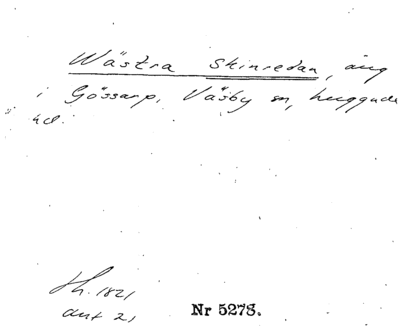 Wästra Skinredan, äng
i Gössarp, Väsby sn, Luggude
hd.
Lh. 1821
akt 21
Nr 5278.